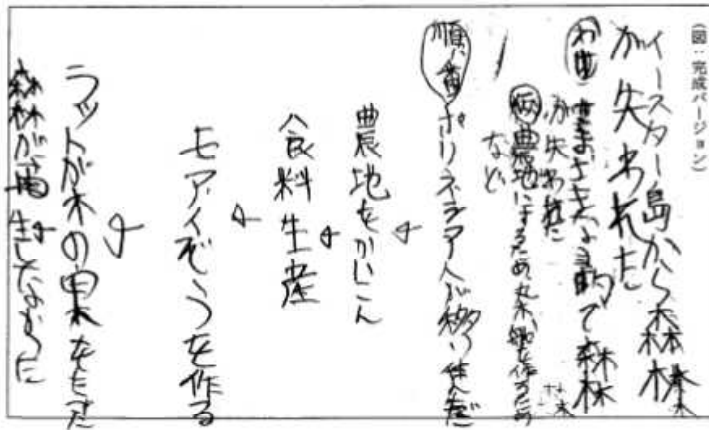 (図:完成バージョン)
イースター島から森林
が失われた
さまざまな目的で森林
が失われた
例 農地にするため、丸木舟を作るため
など
順番 ポリネシア人が移り住んだ
↓
農地をかいこん
↓
食料生産
↓
モアイぞうを作る
↓
ラットが木の実をたべた
↓
森林が再生しなかった